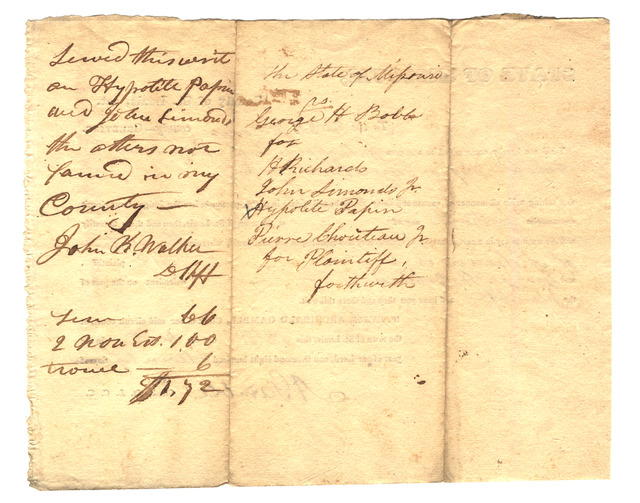 Served this writ
on Hypolite Papin
and John Simonds
the others not
found in my
County —
John K. Walker
D Shff
serv 66
2 Non Est. 100
travel — 6
$1.72
The State of Missouri
vs.
George H Bobb
for
H Richards
John Simonds Jr.
Hypolite Papin
Pierre Chouteau Jr
for Plaintiff,
forthwith